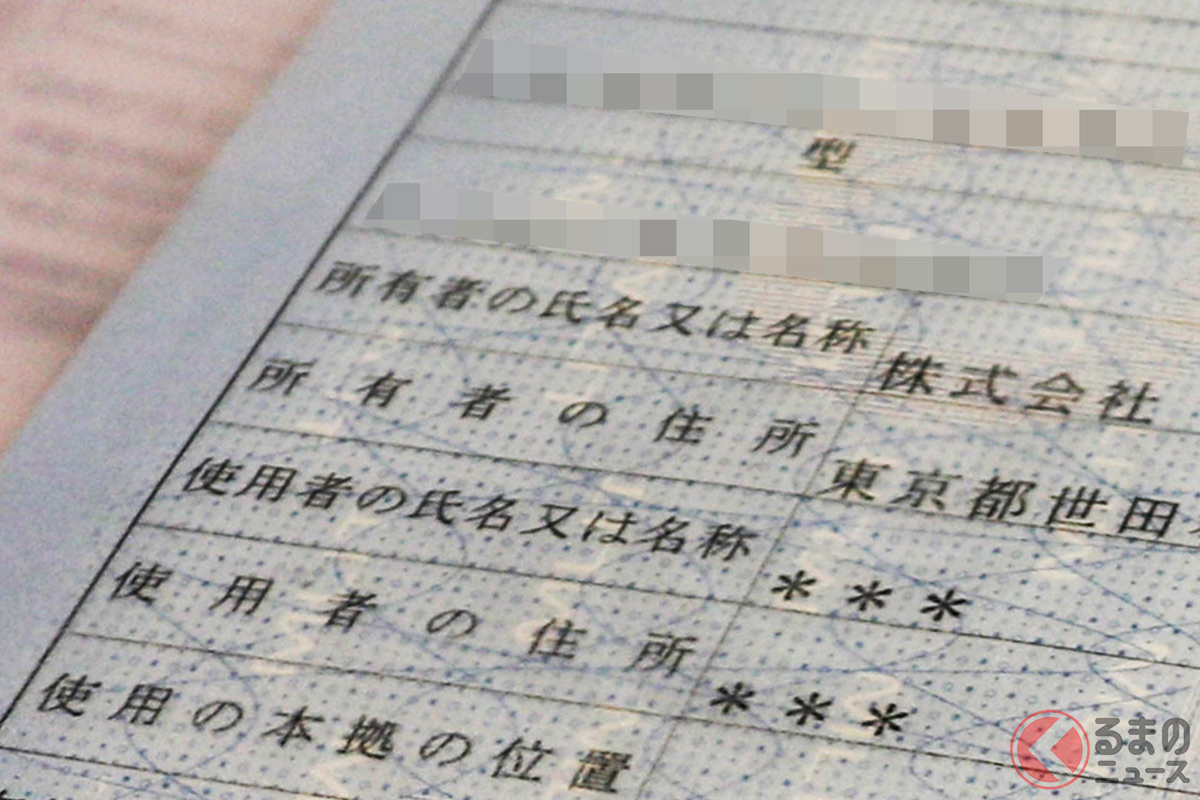 型
所有者の氏名又は名称 株式会社
所有者の住所 東京都世田
使用者の氏名又は名称 ***
使用者の住所 ***
使用の本拠の位置
くるまのニュース